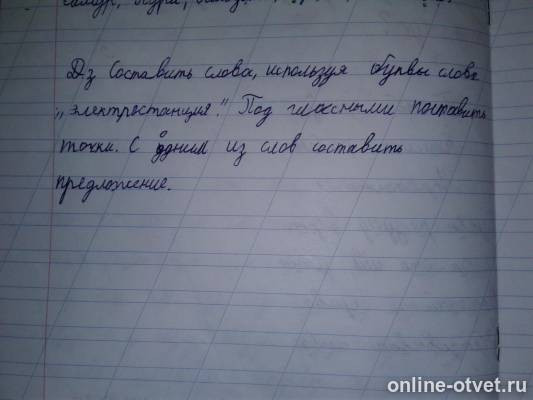 Д.з Составить слова, используя буквы слова
„электростанция." Под гласными поставить
точки. С одним из слов составить
предложение.
online-otvet.ru